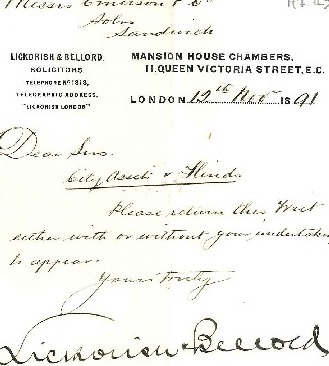 Messrs Emerson & Co
Solrs
Sandwich
LICKORISH & BELLORD.
SOLICITORS.
TELEPHONE Nº 1818.
TELEGRAPHIC ADDRESS.
"LICKORISH LONDON"
MANSION HOUSE CHAMBERS,
11, QUEEN VICTORIA STREET, E.C.
LONDON 12th Nov 1891
Dear Sirs.
City Assets v Hinds
Please return this Writ
either with or without your undertaking
to appear.
Yours truly
Lickorish & Bellord